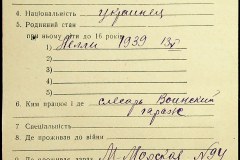 4. Національність украинец
5. Родинний стан
при ньому діти до 16 років
1) Нелли 1939
2)
3)
4)
5)
6. Ким працює і де слесарь Воинский
гараж
7. Спеціальність
8. Де проживав до війни
М-Морская №94